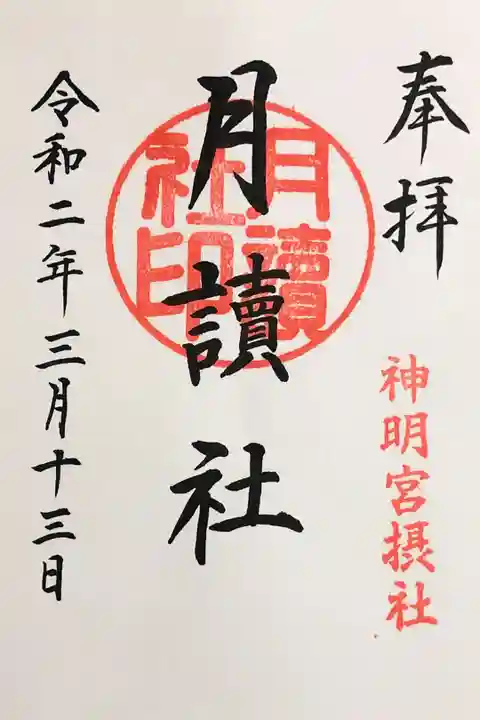 奉拝
神明宮摂社
月讀社
月讀
社印
令和二年三月十三日